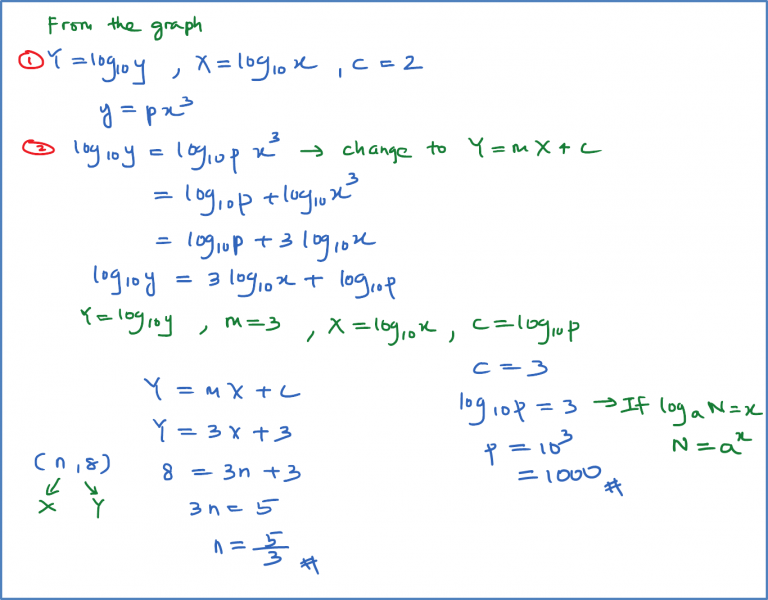 From the graph
① Y = log₁₀y , X = log₁₀x , c = 2
y = px³
② log₁₀y = log₁₀p x³ → change to Y = mX + c
= log₁₀p + log₁₀x³
= log₁₀p + 3 log₁₀x
log₁₀y = 3 log₁₀x + log₁₀p
Y = log₁₀y , m = 3 , X = log₁₀x , c = log₁₀p
c = 3
log₁₀p = 3 → If logₐN = x
p = 10³ N = aˣ
= 1000 #
Y = mX + c
Y = 3x + 3
(n , 8) 8 = 3n + 3
X Y 3n = 5
n = 5/3 #